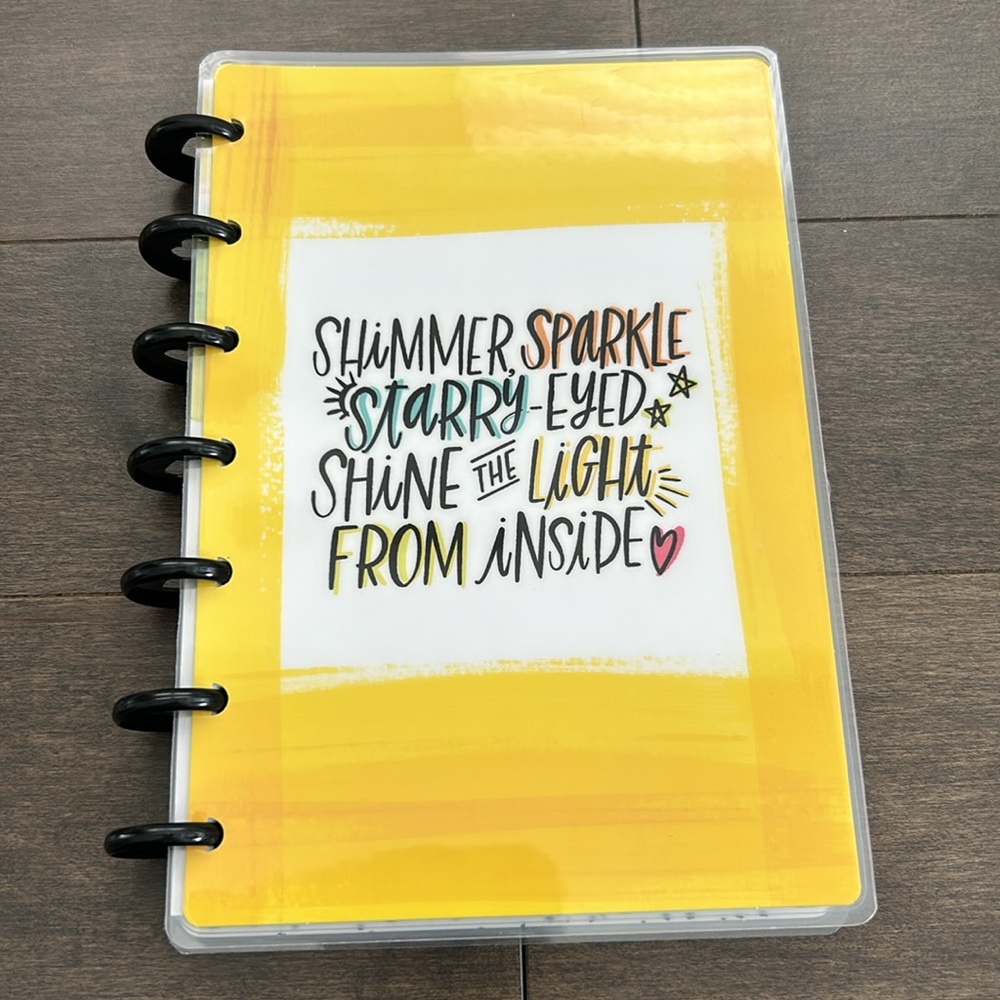 SHiMMER, SPARKLE
StaRRy-EyED
SHiNE THE LiGHt
FROM iNSiDE